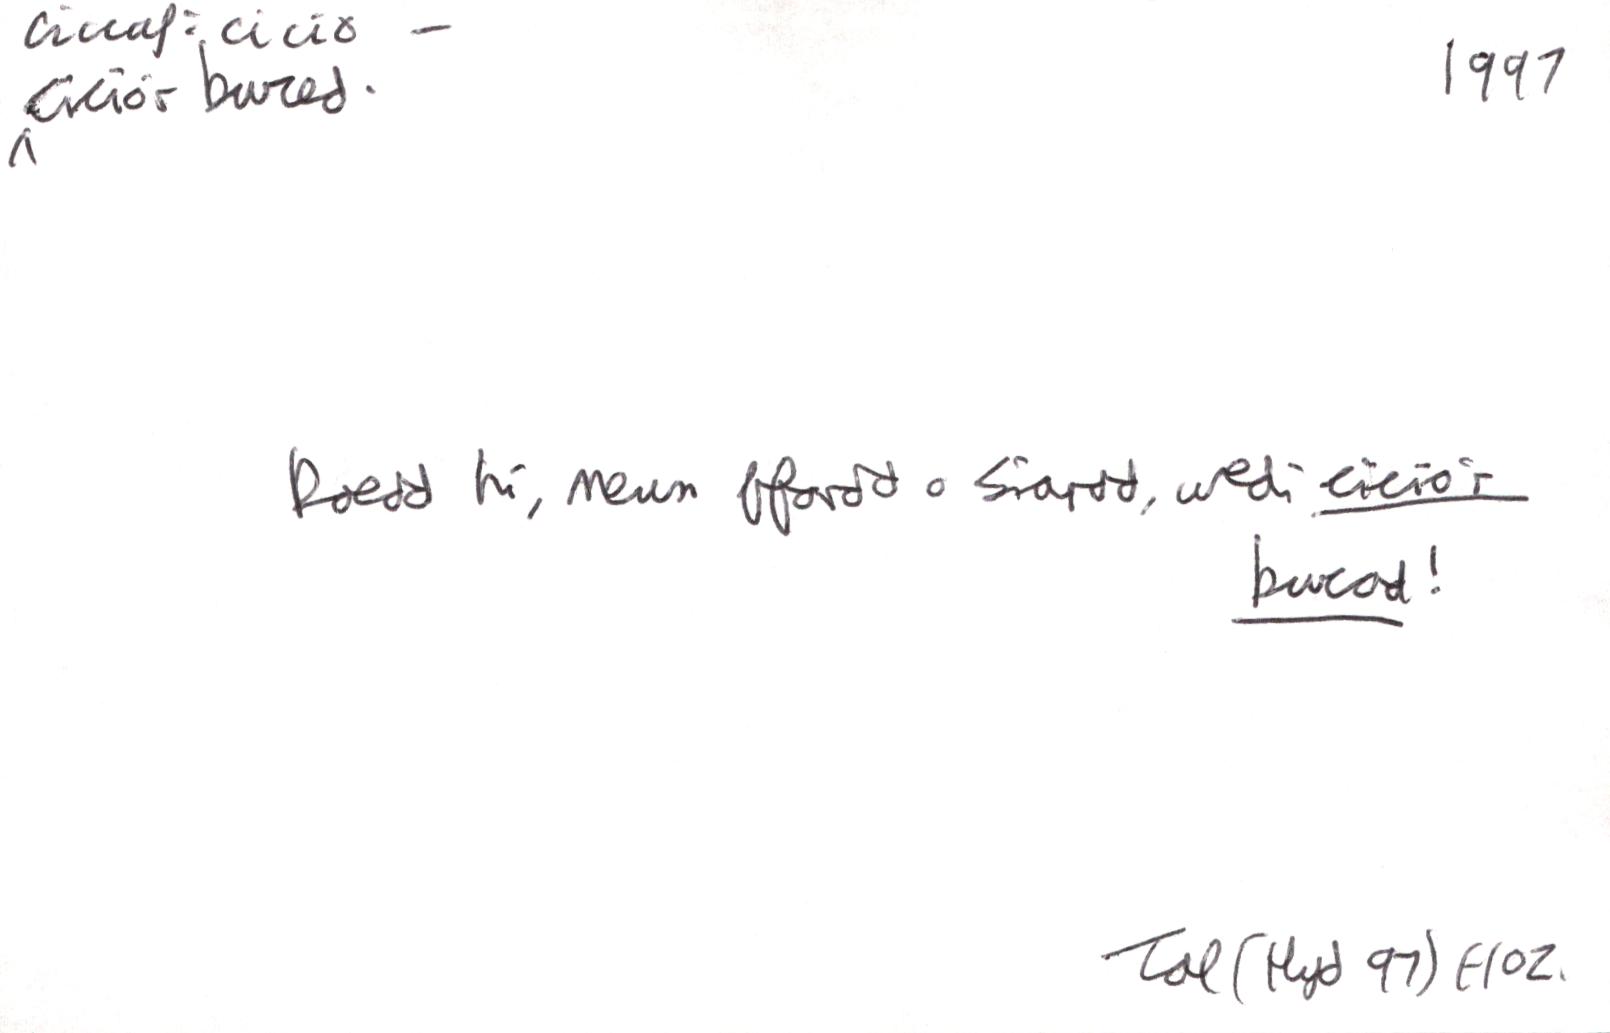 ciciaf: cicio –
cicio'r bwced.
1997
Roedd hi, mewn ffordd o siarad, wedi cicio'r
bwced!
Tal (Hyd 97) E102.